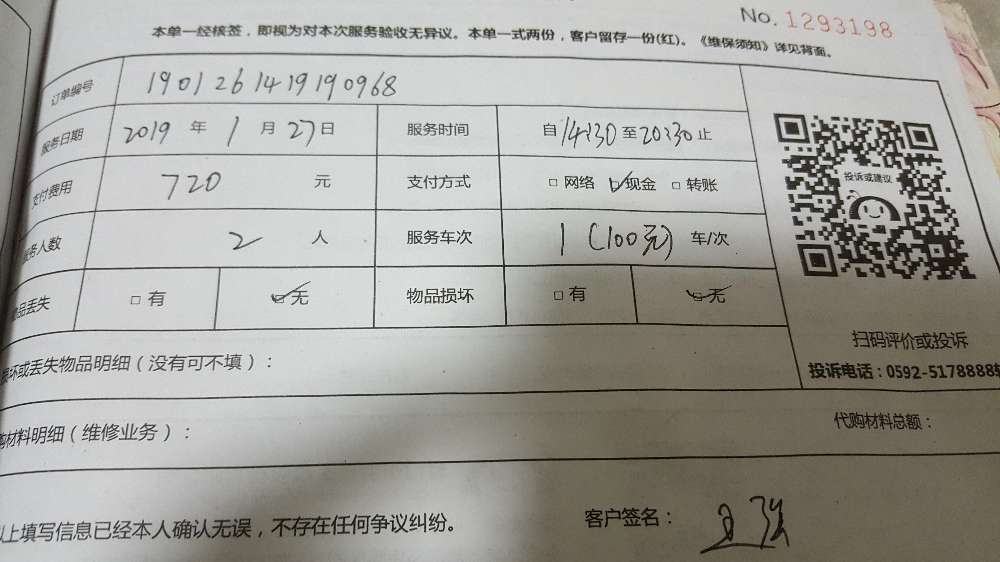 No. 1293198
本单一经核签，即视为对本次服务验收无异议。本单一式两份，客户留存一份(红)。《维保须知》详见背面。
订单编号 1901261419190968
服务日期 2019 年 1 月 27 日 服务时间 自 14:30 至 20:30 止
支付费用 720 元 支付方式 □ 网络 ☑ 现金 □ 转账
投诉或建议
务人数 2 人 服务车次 1 (100元) 车/次
品丢失 □ 有 ☑ 无 物品损坏 □ 有 ☑ 无
扫码评价或投诉
损坏或丢失物品明细（没有可不填）：
投诉电话：0592-5178888转
购材料明细（维修业务）： 代购材料总额：
以上填写信息已经本人确认无误，不存在任何争议纠纷。 客户签名：